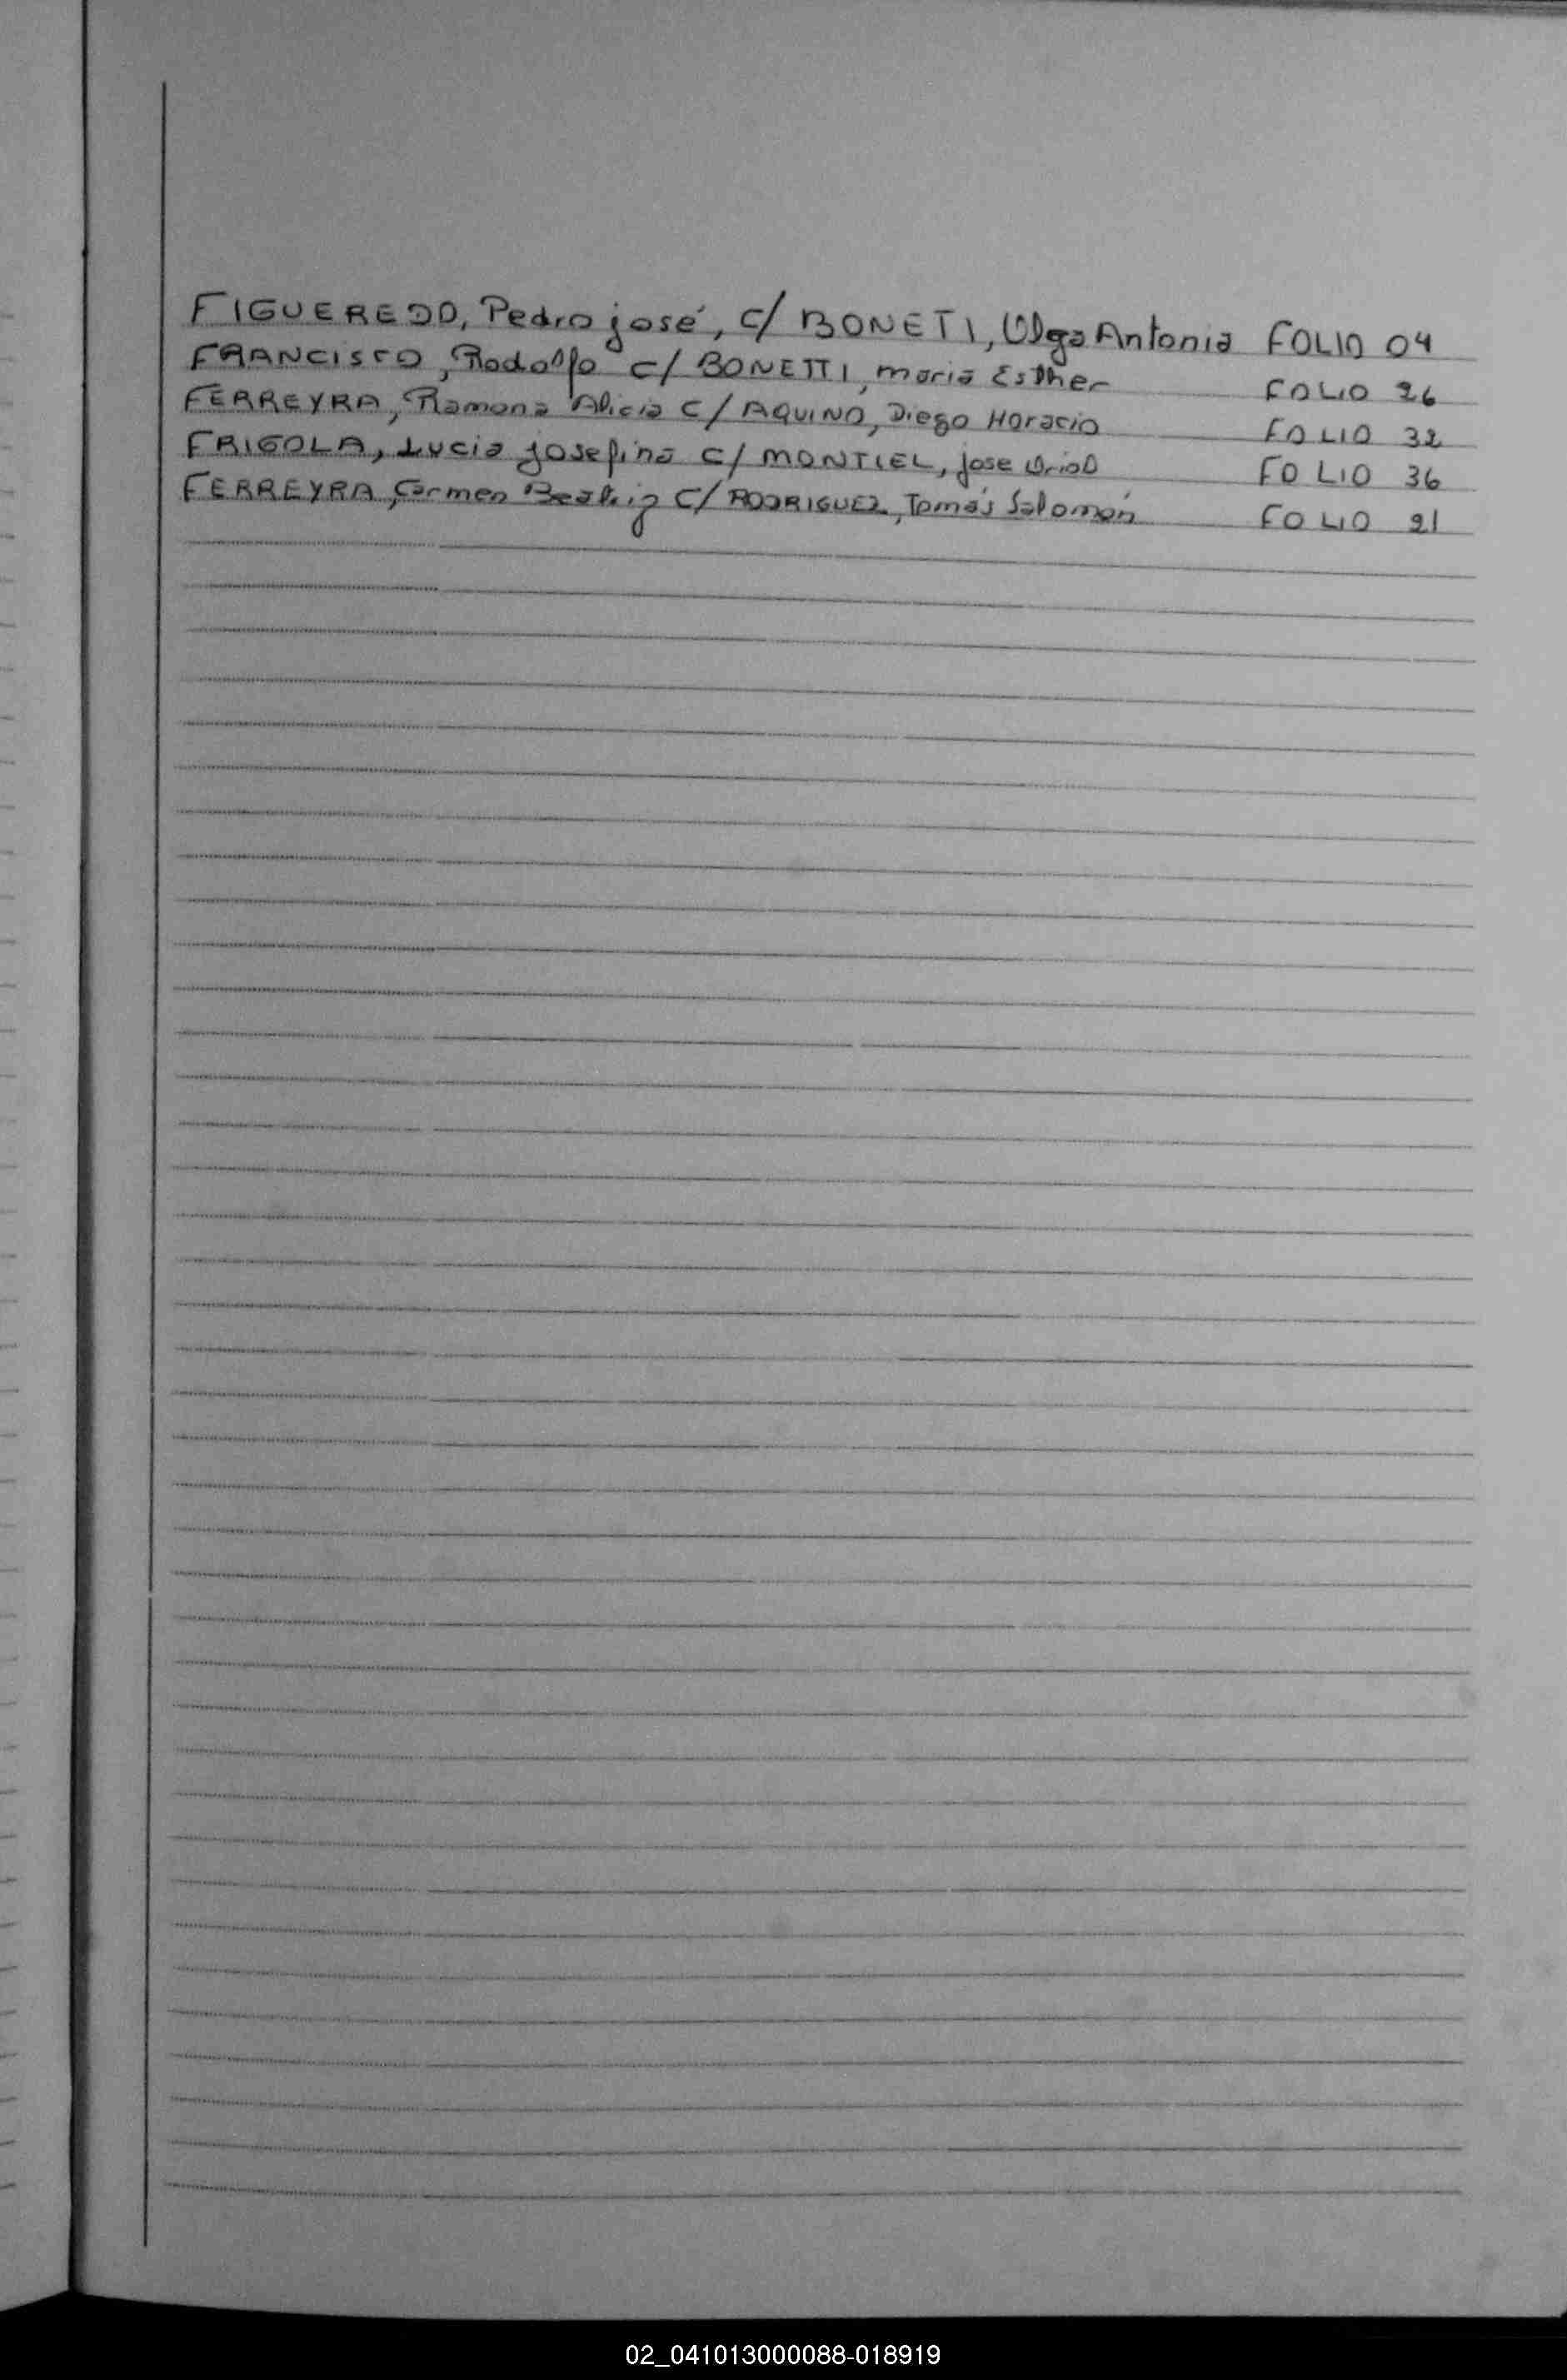 FIGUEREDO, Pedro josé, c/ BONETI, Olga Antonia FOLIO 04
FRANCISCO, Rodolfo c/ BONETTI, maria Esther FOLIO 26
FERREYRA, Ramona Alicia c/ AQUINO, Diego Horacio FOLIO 32
FRIGOLA, Lucia josefina c/ MONTIEL, jose Oriol FOLIO 36
FERREYRA, Carmen Beatriz c/ RODRIGUEZ, Tomás Salomón FOLIO 21
02_041013000088-018919